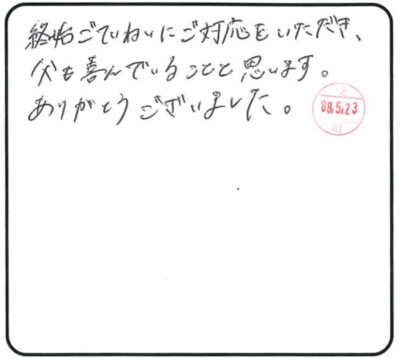 終始ごていねいにご対応をいただき、
父も喜んでいることと思います。
ありがとうございました。
08.5.23